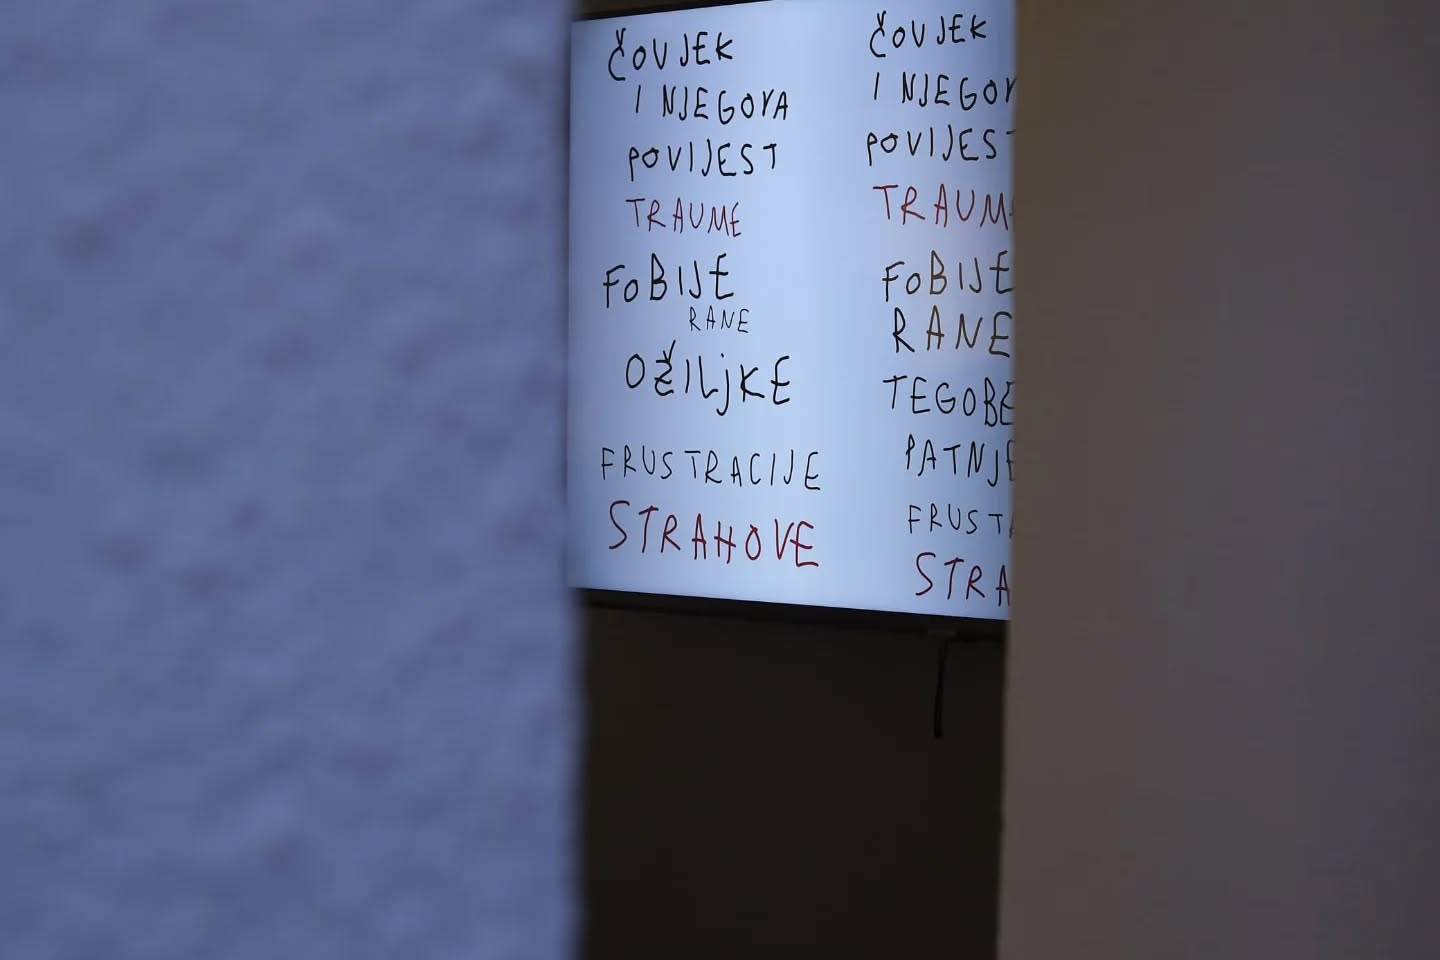 ČOVJEK
I NJEGOVA
POVIJEST
TRAUME
FOBIJE
RANE
OŽILjKE
FRUSTRACIJE
STRAHOVE
ČOVJEK
I NJEGOV
POVIJEST
TRAUM
FOBIJE
RANE
TEGOBE
PATNJE
FRUST
STRA